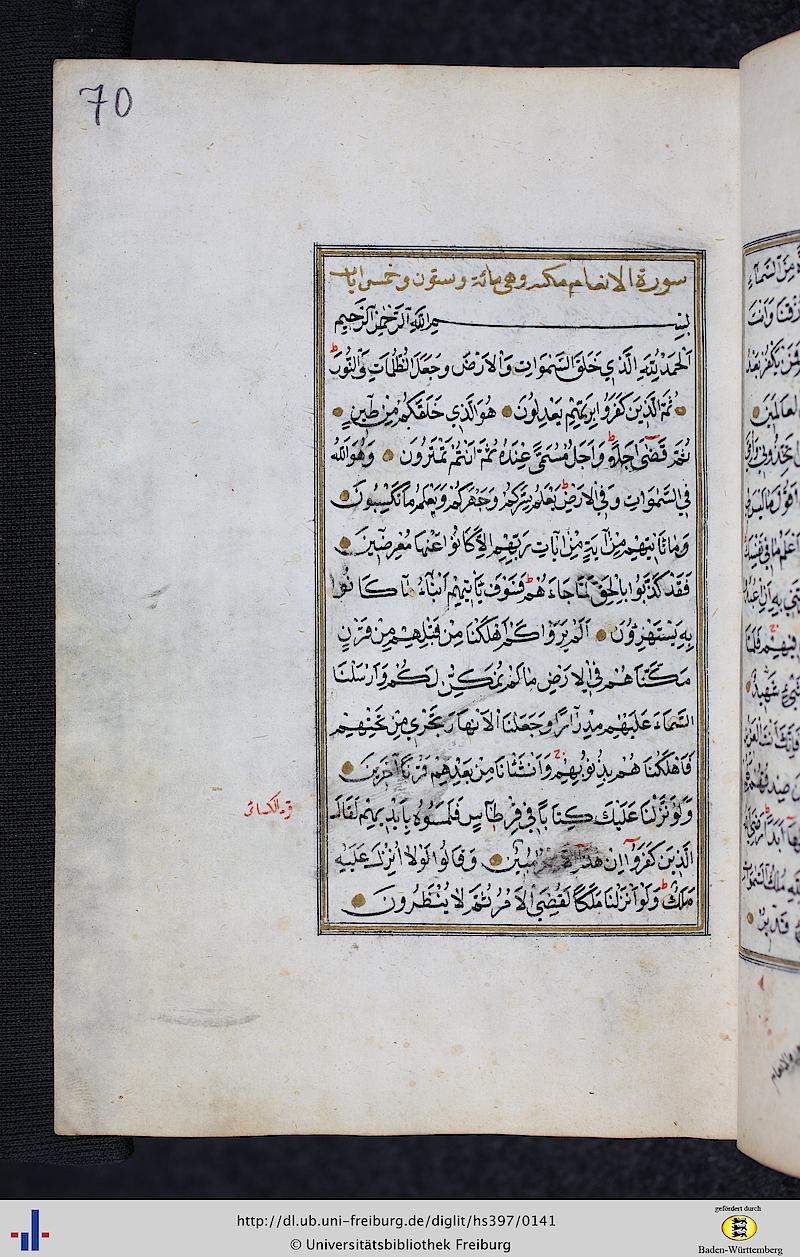 70
سورة الانعام مكية وهي مائة وستون وخمس ايات
بِسْمِ اللّٰهِ الرَّحْمٰنِ الرَّحِيمِ
اَلْحَمْدُ لِلّٰهِ الَّذِي خَلَقَ السَّمٰوَاتِ وَالْاَرْضَ وَجَعَلَ الظُّلُمَاتِ وَالنُّورَ ط
ثُمَّ الَّذِينَ كَفَرُوا بِرَبِّهِمْ يَعْدِلُونَ هُوَ الَّذِي خَلَقَكُمْ مِنْ طِينٍ
ثُمَّ قَضٰى اَجَلًا ط وَاَجَلٌ مُسَمًّى عِنْدَهُ ثُمَّ اَنْتُمْ تَمْتَرُونَ وَهُوَ اللّٰهُ
فِي السَّمٰوَاتِ وَفِي الْاَرْضِ ط يَعْلَمُ سِرَّكُمْ وَجَهْرَكُمْ وَيَعْلَمُ مَا تَكْسِبُونَ
وَمَا تَاْتِيهِمْ مِنْ اٰيَةٍ مِنْ اٰيَاتِ رَبِّهِمْ اِلَّا كَانُوا عَنْهَا مُعْرِضِينَ
فَقَدْ كَذَّبُوا بِالْحَقِّ لَمَّا جَاءَهُمْ ط فَسَوْفَ يَاْتِيهِمْ اَنْبَاءُ مَا كَانُوا
بِهِ يَسْتَهْزِؤُنَ اَلَمْ يَرَوْا كَمْ اَهْلَكْنَا مِنْ قَبْلِهِمْ مِنْ قَرْنٍ
مَكَّنَّاهُمْ فِي الْاَرْضِ مَا لَمْ نُمَكِّنْ لَكُمْ وَاَرْسَلْنَا
السَّمَاءَ عَلَيْهِمْ مِدْرَارًا وَجَعَلْنَا الْاَنْهَارَ تَجْرِي مِنْ تَحْتِهِمْ
فَاَهْلَكْنَاهُمْ بِذُنُوبِهِمْ وَاَنْشَاْنَا مِنْ بَعْدِهِمْ قَرْنًا اٰخَرِينَ
وَلَوْ نَزَّلْنَا عَلَيْكَ كِتَابًا فِي قِرْطَاسٍ فَلَمَسُوهُ بِاَيْدِيهِمْ لَقَالَ
الَّذِينَ كَفَرُوا اِنْ هٰذَا مُبِينٌ وَقَالُوا لَوْلَا اُنْزِلَ عَلَيْهِ
مَلَكٌ ط وَلَوْ اَنْزَلْنَا مَلَكًا لَقُضِيَ الْاَمْرُ ثُمَّ لَا يُنْظَرُونَ
http://dl.ub.uni-freiburg.de/diglit/hs397/0141
© Universitätsbibliothek Freiburg
gefördert durch
Baden-Württemberg